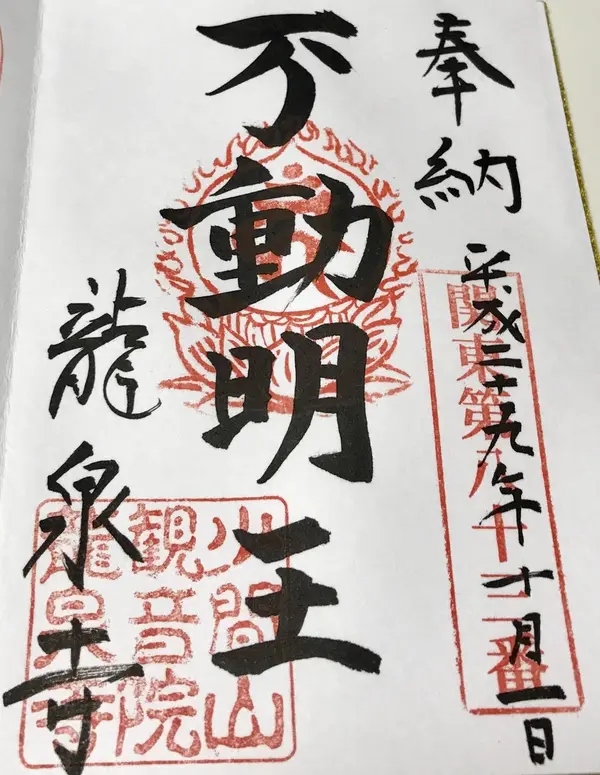 奉納
平成二十九年十月一日
関東第八十二番
不動明王
龍泉寺
少間山
観音院
龍泉寺